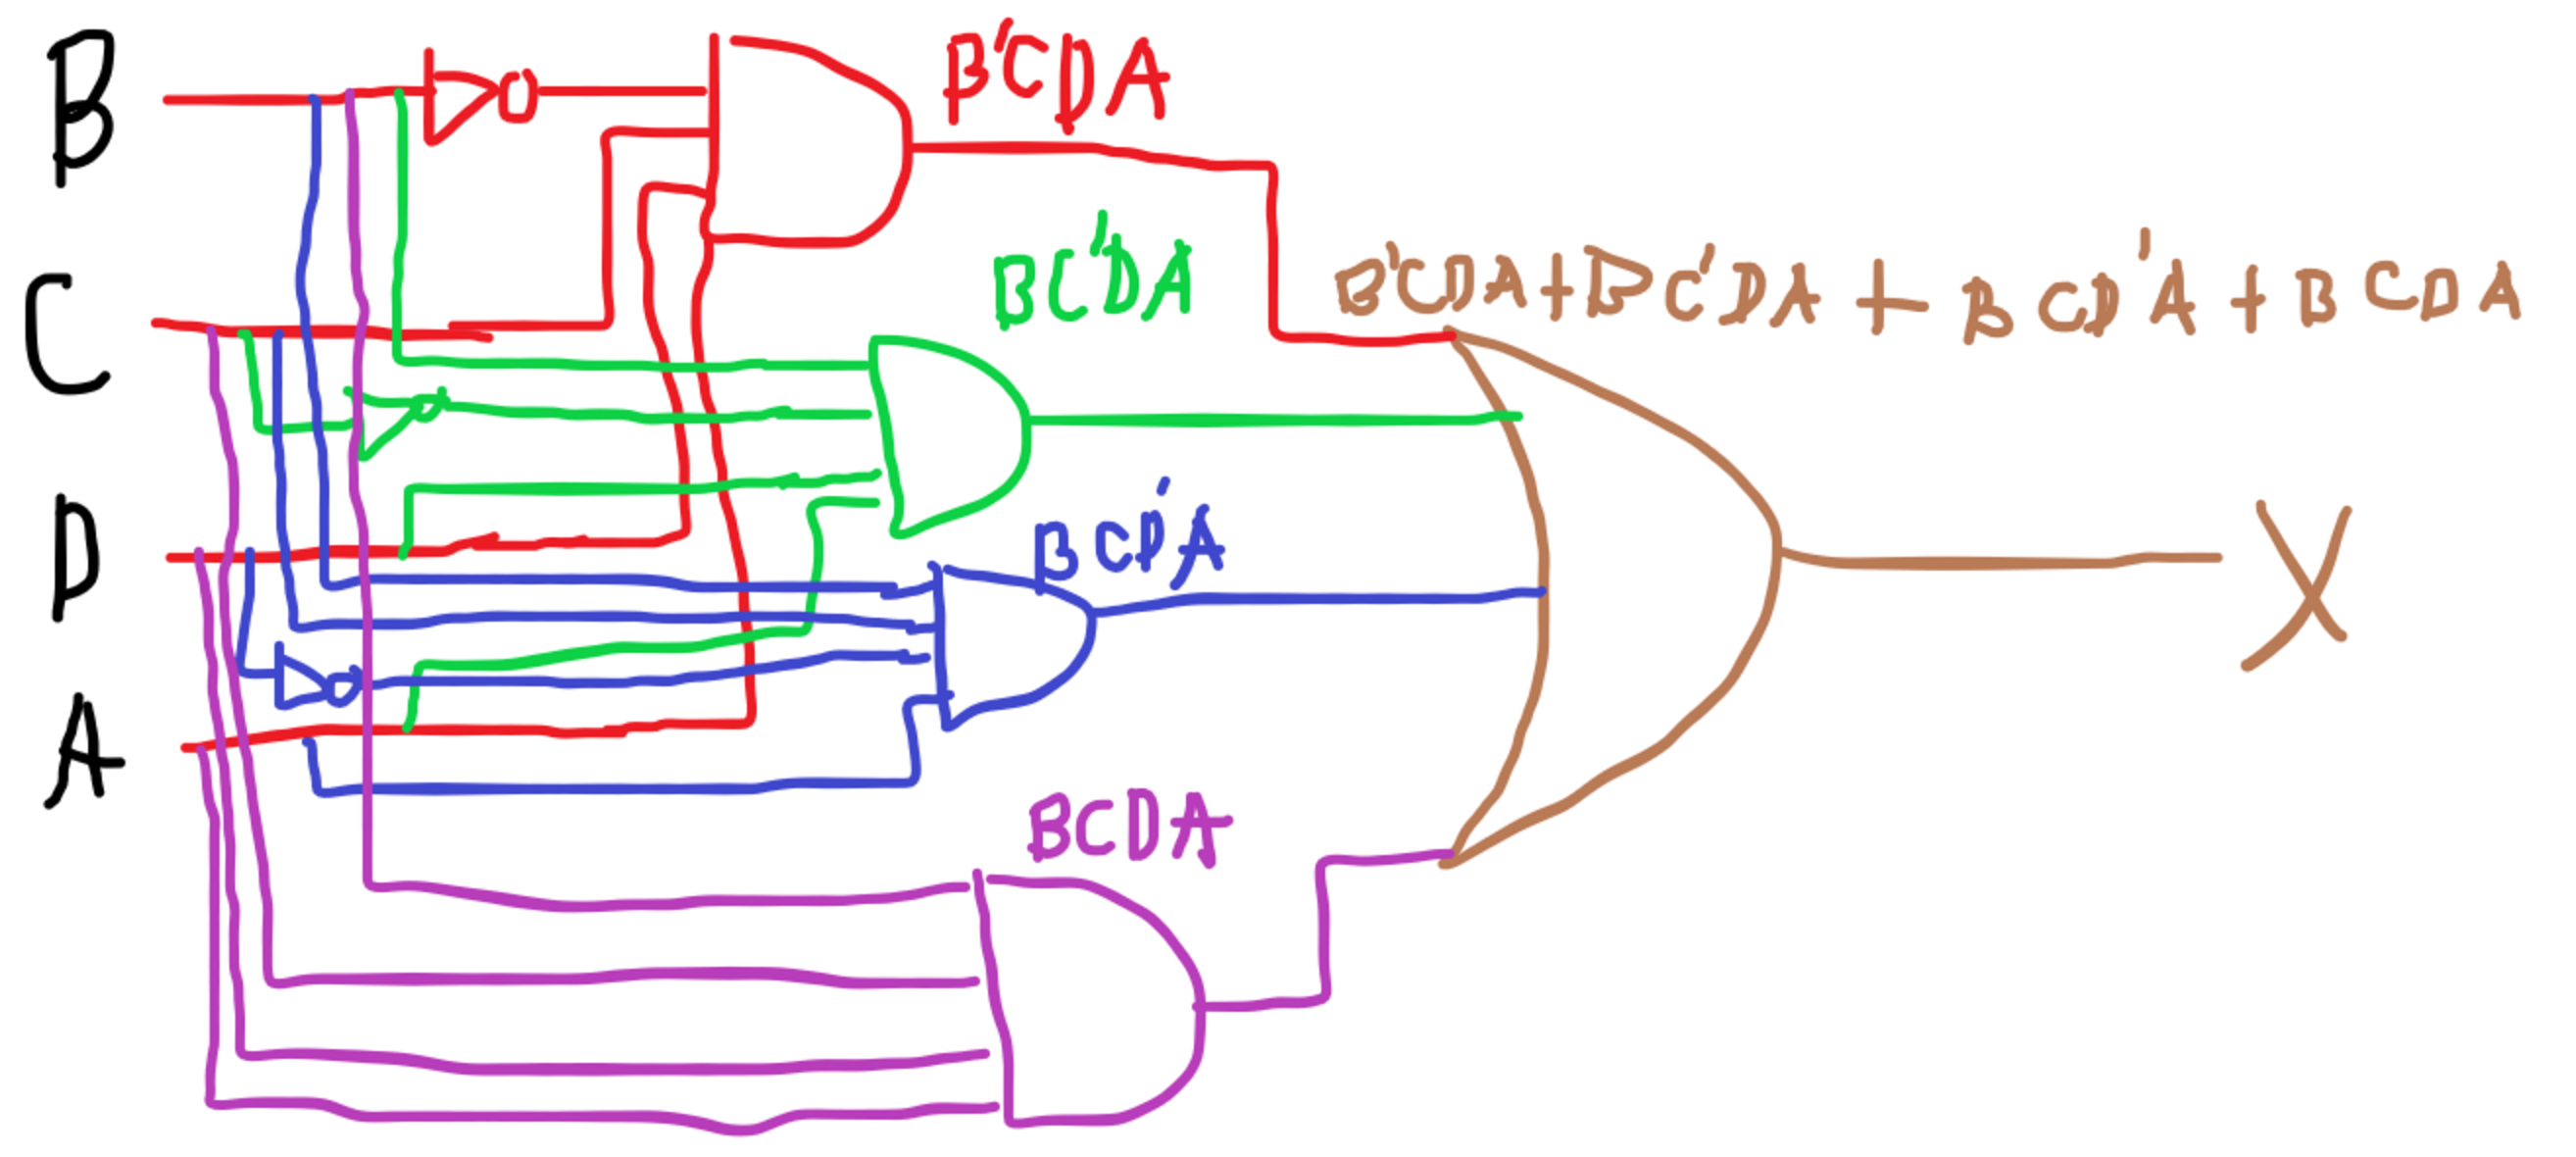 B
B'CDA
BC'DA
B'CDA+BC'DA + BCD'A + BCDA
C
BCD'A
D
X
A
BCDA